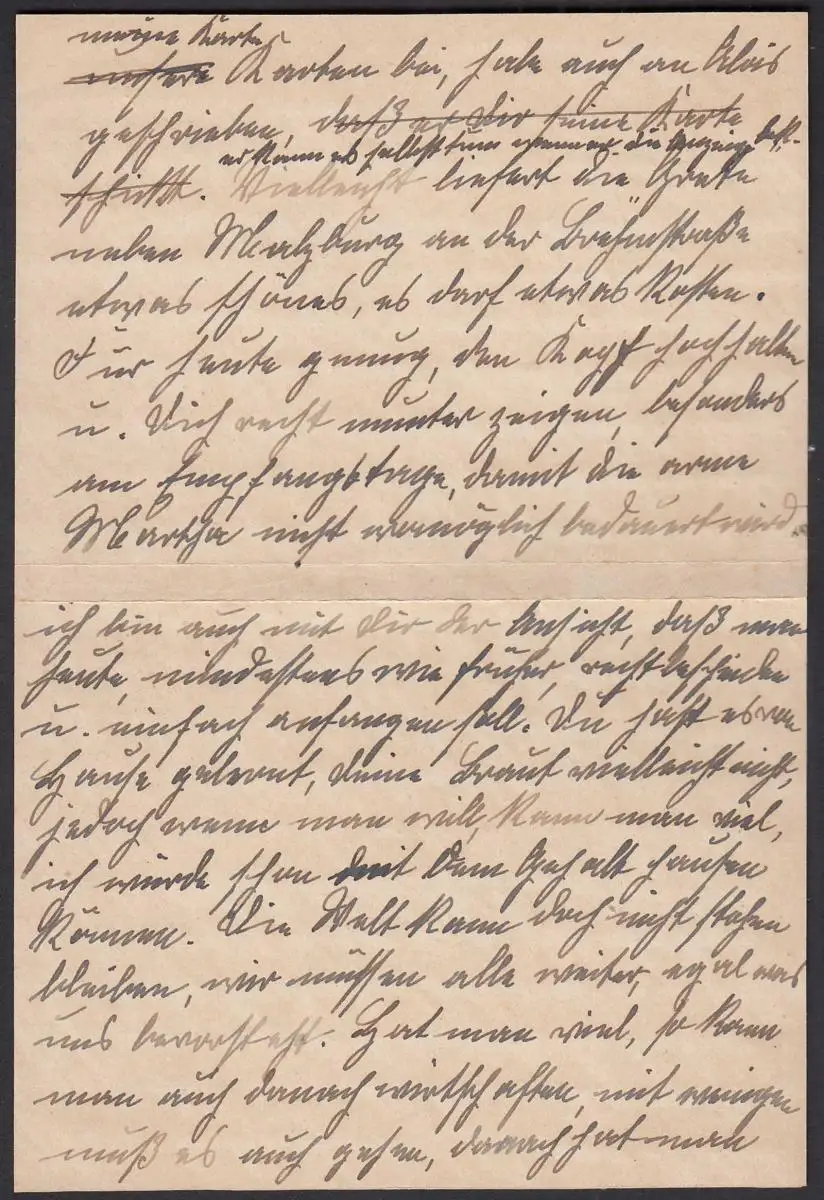 meine Karte
unsere Karten bei, habe auch an Alois
geschrieben, daß er dir seine Karte
er kann es selbst tun wenn er die Anzeige bek.
schickt. Vielleicht liefert die Grete
neben Malzburg an der Brehmstraße
etwas schönes, es darf etwas kosten.
Für heute genug, den Kopf hochhalten
u. Dich recht munter zeigen, besonders
am Empfangstage, damit die arme
Martha nicht womöglich bedauert wird.
ich bin auch mit dir der Ansicht, daß man
heute, mindestens wie früher, recht bescheiden
u. einfach anfangen soll. Du hast es von
Hause gelernt, deine Braut vielleicht nicht,
jedoch wenn man will, kann man viel,
ich würde schon mit dem Gehalt hausen
können. Die Welt kann doch nicht stehen
bleiben, wir müssen alle weiter, egal was
uns bevorsteht. Hat man viel, so kann
man auch danach wirtschaften, mit wenigen
muß es auch gehen, danach hat man